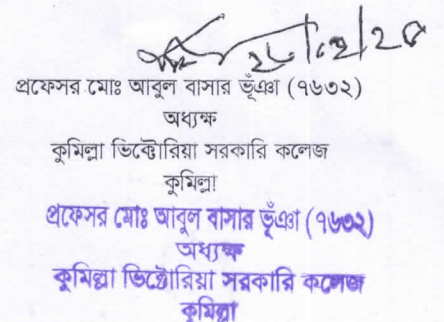 ২৬/০২/২৫
প্রফেসর মোঃ আবুল বাসার ভূঁঞা (৭৬৩২)
অধ্যক্ষ
কুমিল্লা ভিক্টোরিয়া সরকারি কলেজ
কুমিল্লা
প্রফেসর মোঃ আবুল বাসার ভূঁঞা (৭৬৩২)
অধ্যক্ষ
কুমিল্লা ভিক্টোরিয়া সরকারি কলেজ
কুমিল্লা